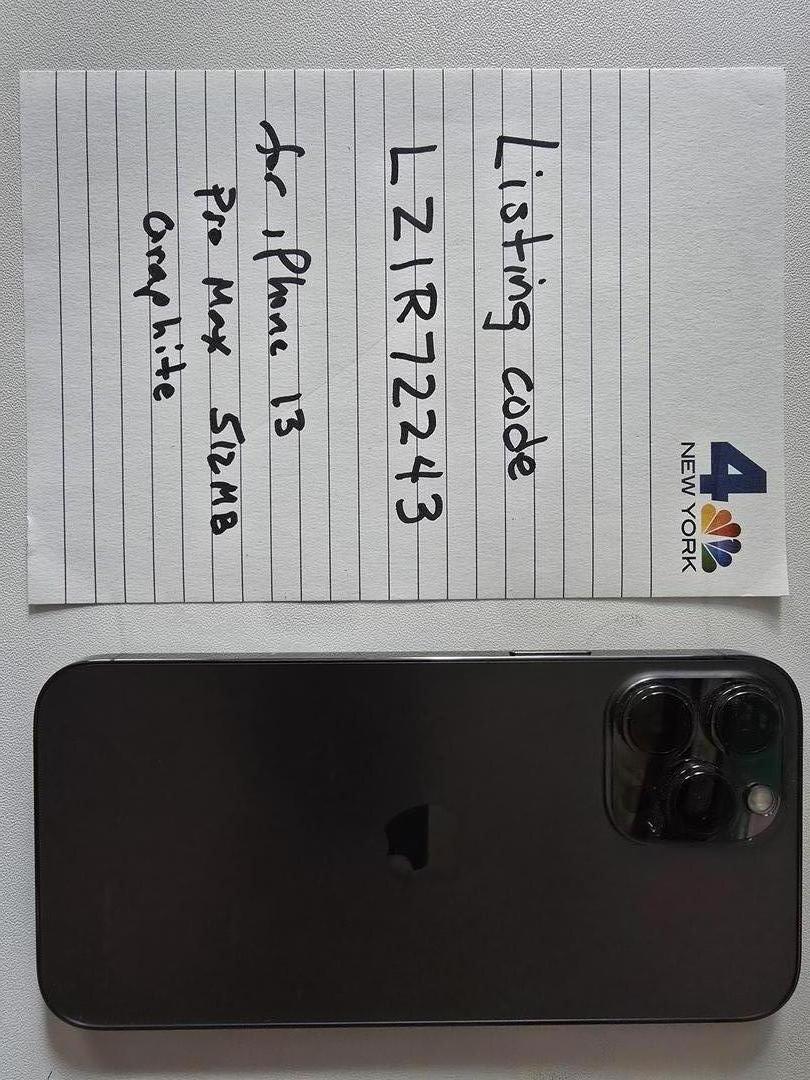 4
NEW YORK
Listing code
LZ1R72243
for iPhone 13
Pro Max 512MB
Graphite